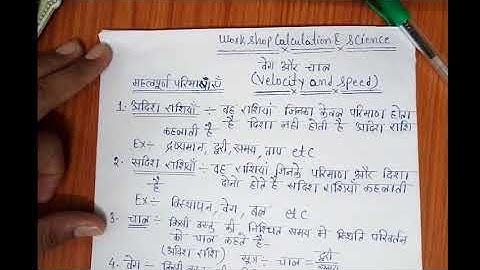 Workshop Calculation & Science
वेग और चाल
(Velocity and Speed)
महत्वपूर्ण परिभाषाएँ
1. अदिश राशियाँ ÷ वह राशियां जिनका केवल परिमाण होता
है दिशा नहीं होती है अदिश राशि
कहलाती है
Ex÷ द्रव्यमान, दूरी, समय, ताप etc
2. सदिश राशियाँ ÷ वह राशियां जिनके परिमाण और दिशा
दोनो होते है सदिश राशियाँ कहलाती
है
Ex ÷ विस्थापन, वेग, बल etc
3. चाल ÷ किसी वस्तु की निश्चित समय मे स्थिति परिवर्तन
को चाल कहते है-
(अदिश राशि) सूत्र÷ चाल = दूरी/समय
4. वेग ÷ किसी